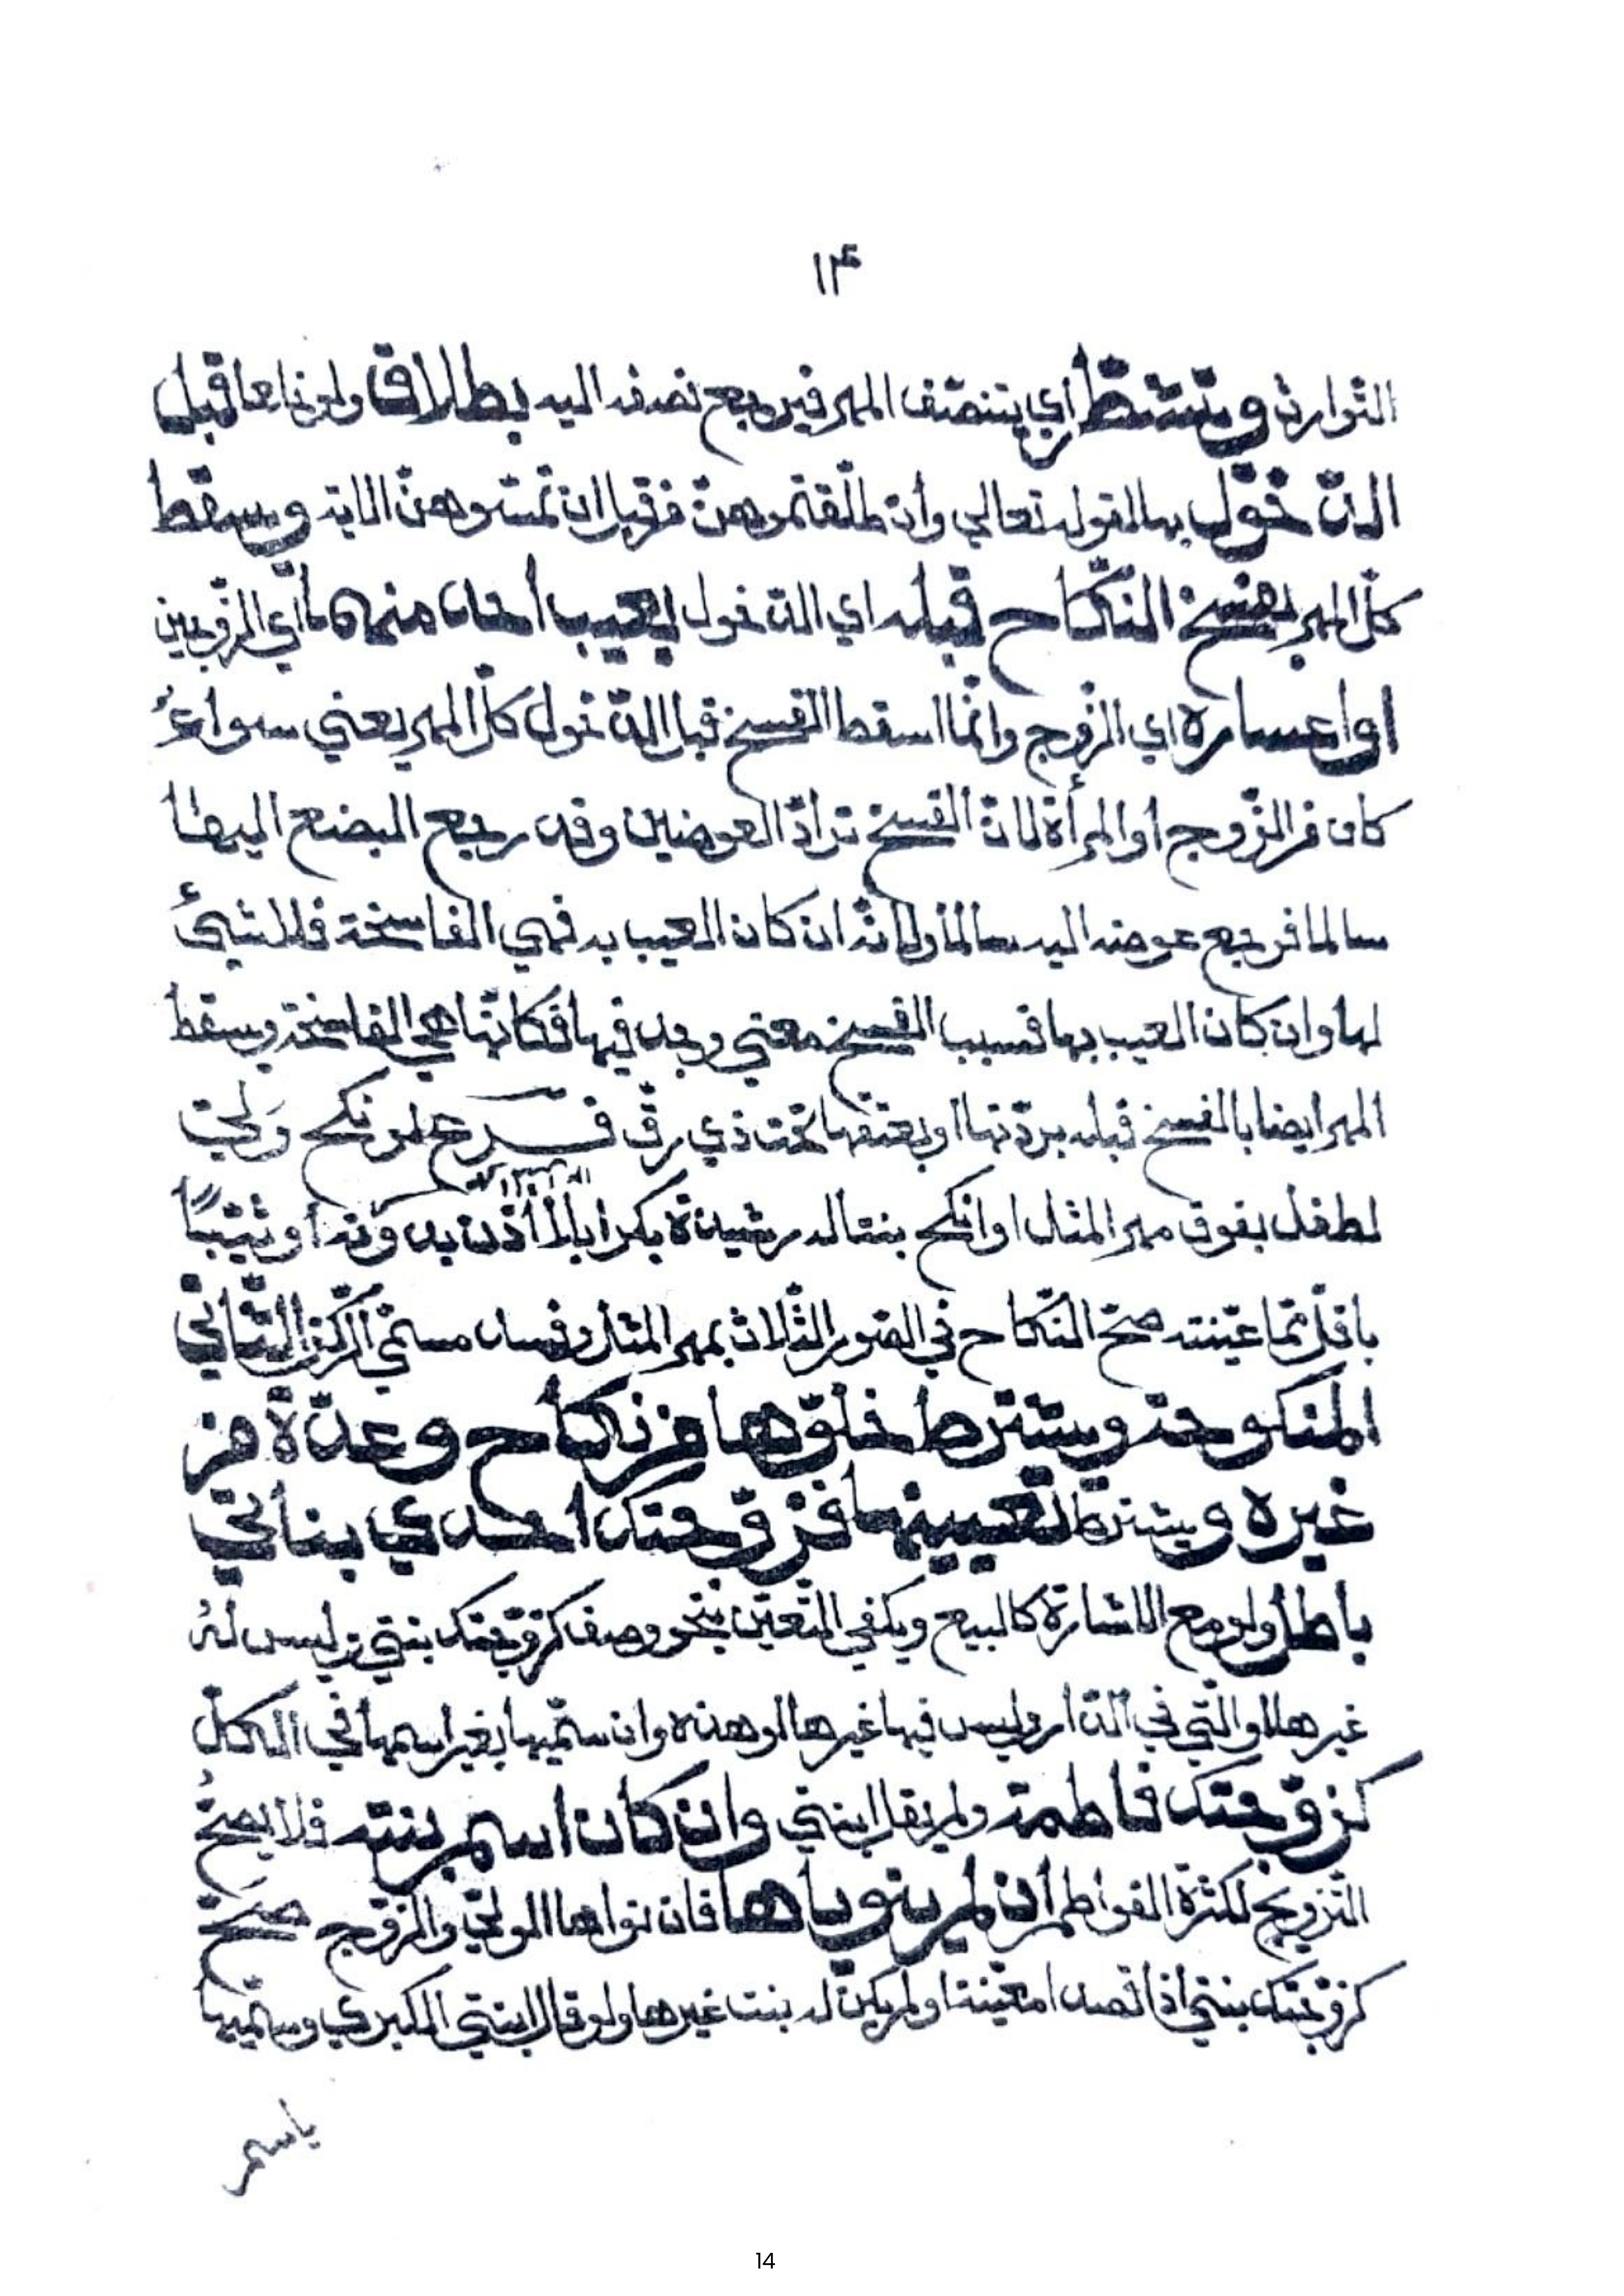 ١٤
التّوارث وتشطّر أي يتنصّف المهر فيرجع نصفه اليه بطلاق ولو خلعا قبل
الدّخول بها لقوله تعالي وان طلّقتموهنّ من قبل ان تمسّوهنّ الاية وسقط
كلّ المهر بفسخ النّكاح قبله اي الدّخول بعيب أحد منهما أي الزّوجين
او اعساره اي الزّوج وانّما اسقط الفسخ قبل الدّخول كلّ المهر يعني سواءٌ
كان من الزّوج او المرأة لانّ الفسخ ترادّ العوضين وقد رجع البضع اليها
سالما فرجع عوضه اليه سالما ولانّه ان كان العيب به فهي الفاسخة فلا شيئ
لها وان كان العيب بها فسبب الفسخ معني وجد فيها فكانّها هي الفاسخة وسقط
المهر ايضا بالفسخ قبله بردّتها او بعتقها تحت ذي رقّ فرع لو نكح وليّ
لطفل بفوق مهر المثل او انكح بنتا له رشيدة بكرا بلا اذن بدونه أو ثيّبًا
باقلّ ممّا عيّنته صحّ النّكاح في الصّور الثّلاث بمهر المثل وفسد مسمّي الرّكن الثّاني
المنكوحة ويشترط خلوّها من نكاح وعدّة من
غيره ويشترط تعيينها فزوّجتك احدي بناتي
باطل ولو مع الاشارة كالبيع ويكفي التّعيّن بنحو وصف كزوّجتك بنتي وليس لهُ
غيرها او الّتي في الدّار وليس فيها غيرها او هذه وان سمّيها بغير اسمها في الكلّ
كزوّجتك فاطمة ولم يقل ابنتي وان كان اسم بنته فلا يصحّ
التّزويج لكثرة الفواطم ان لم ينوياها فان نواها الوليّ والزّوج صحّ
كزوّجتك بنتي اذا قصدا معيّنة او لم يكن له بنت غيرها ولو قال ابنتي الكبري وسمّيها
باسم
14